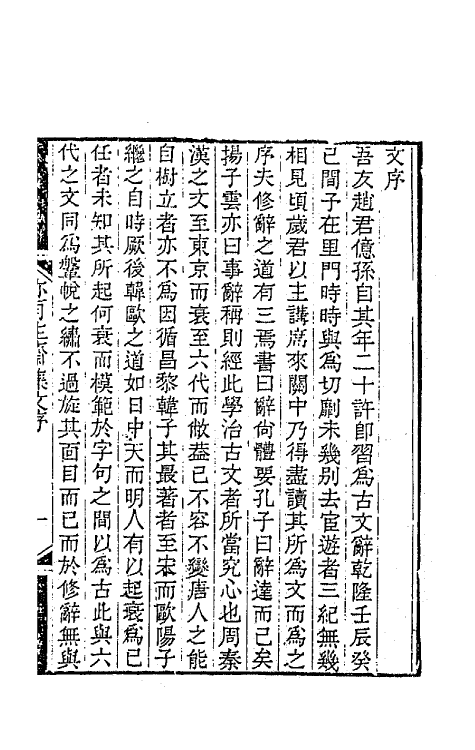 文序
吾友趙君億孫自其年二十許卽習爲古文辭乾隆壬辰癸
己間子在里門時時與爲切劘未幾别去宦遊者三紀無幾
相見頃歲君以主講席來關中乃得盡讀其所爲文而爲之
序夫修辭之道有三焉書曰辭尙體要孔子曰辭達而已矣
揚子雲亦曰事辭稱則經此學治古文者所當究心也周秦
漢之文至東京而衰至六代而敝葢已不容不變唐人之能
自樹立者亦不爲因循昌黎韓子其最著者至宋而歐陽子
繼之自時厥後韓歐之道如日中天而明人有以起衰爲己
任者未知其所起何衰而模範於字句之間以爲古此與六
代之文同爲鞶帨之繡不過旋其面目而已而於修辭無與
亦有生齋集文序
一